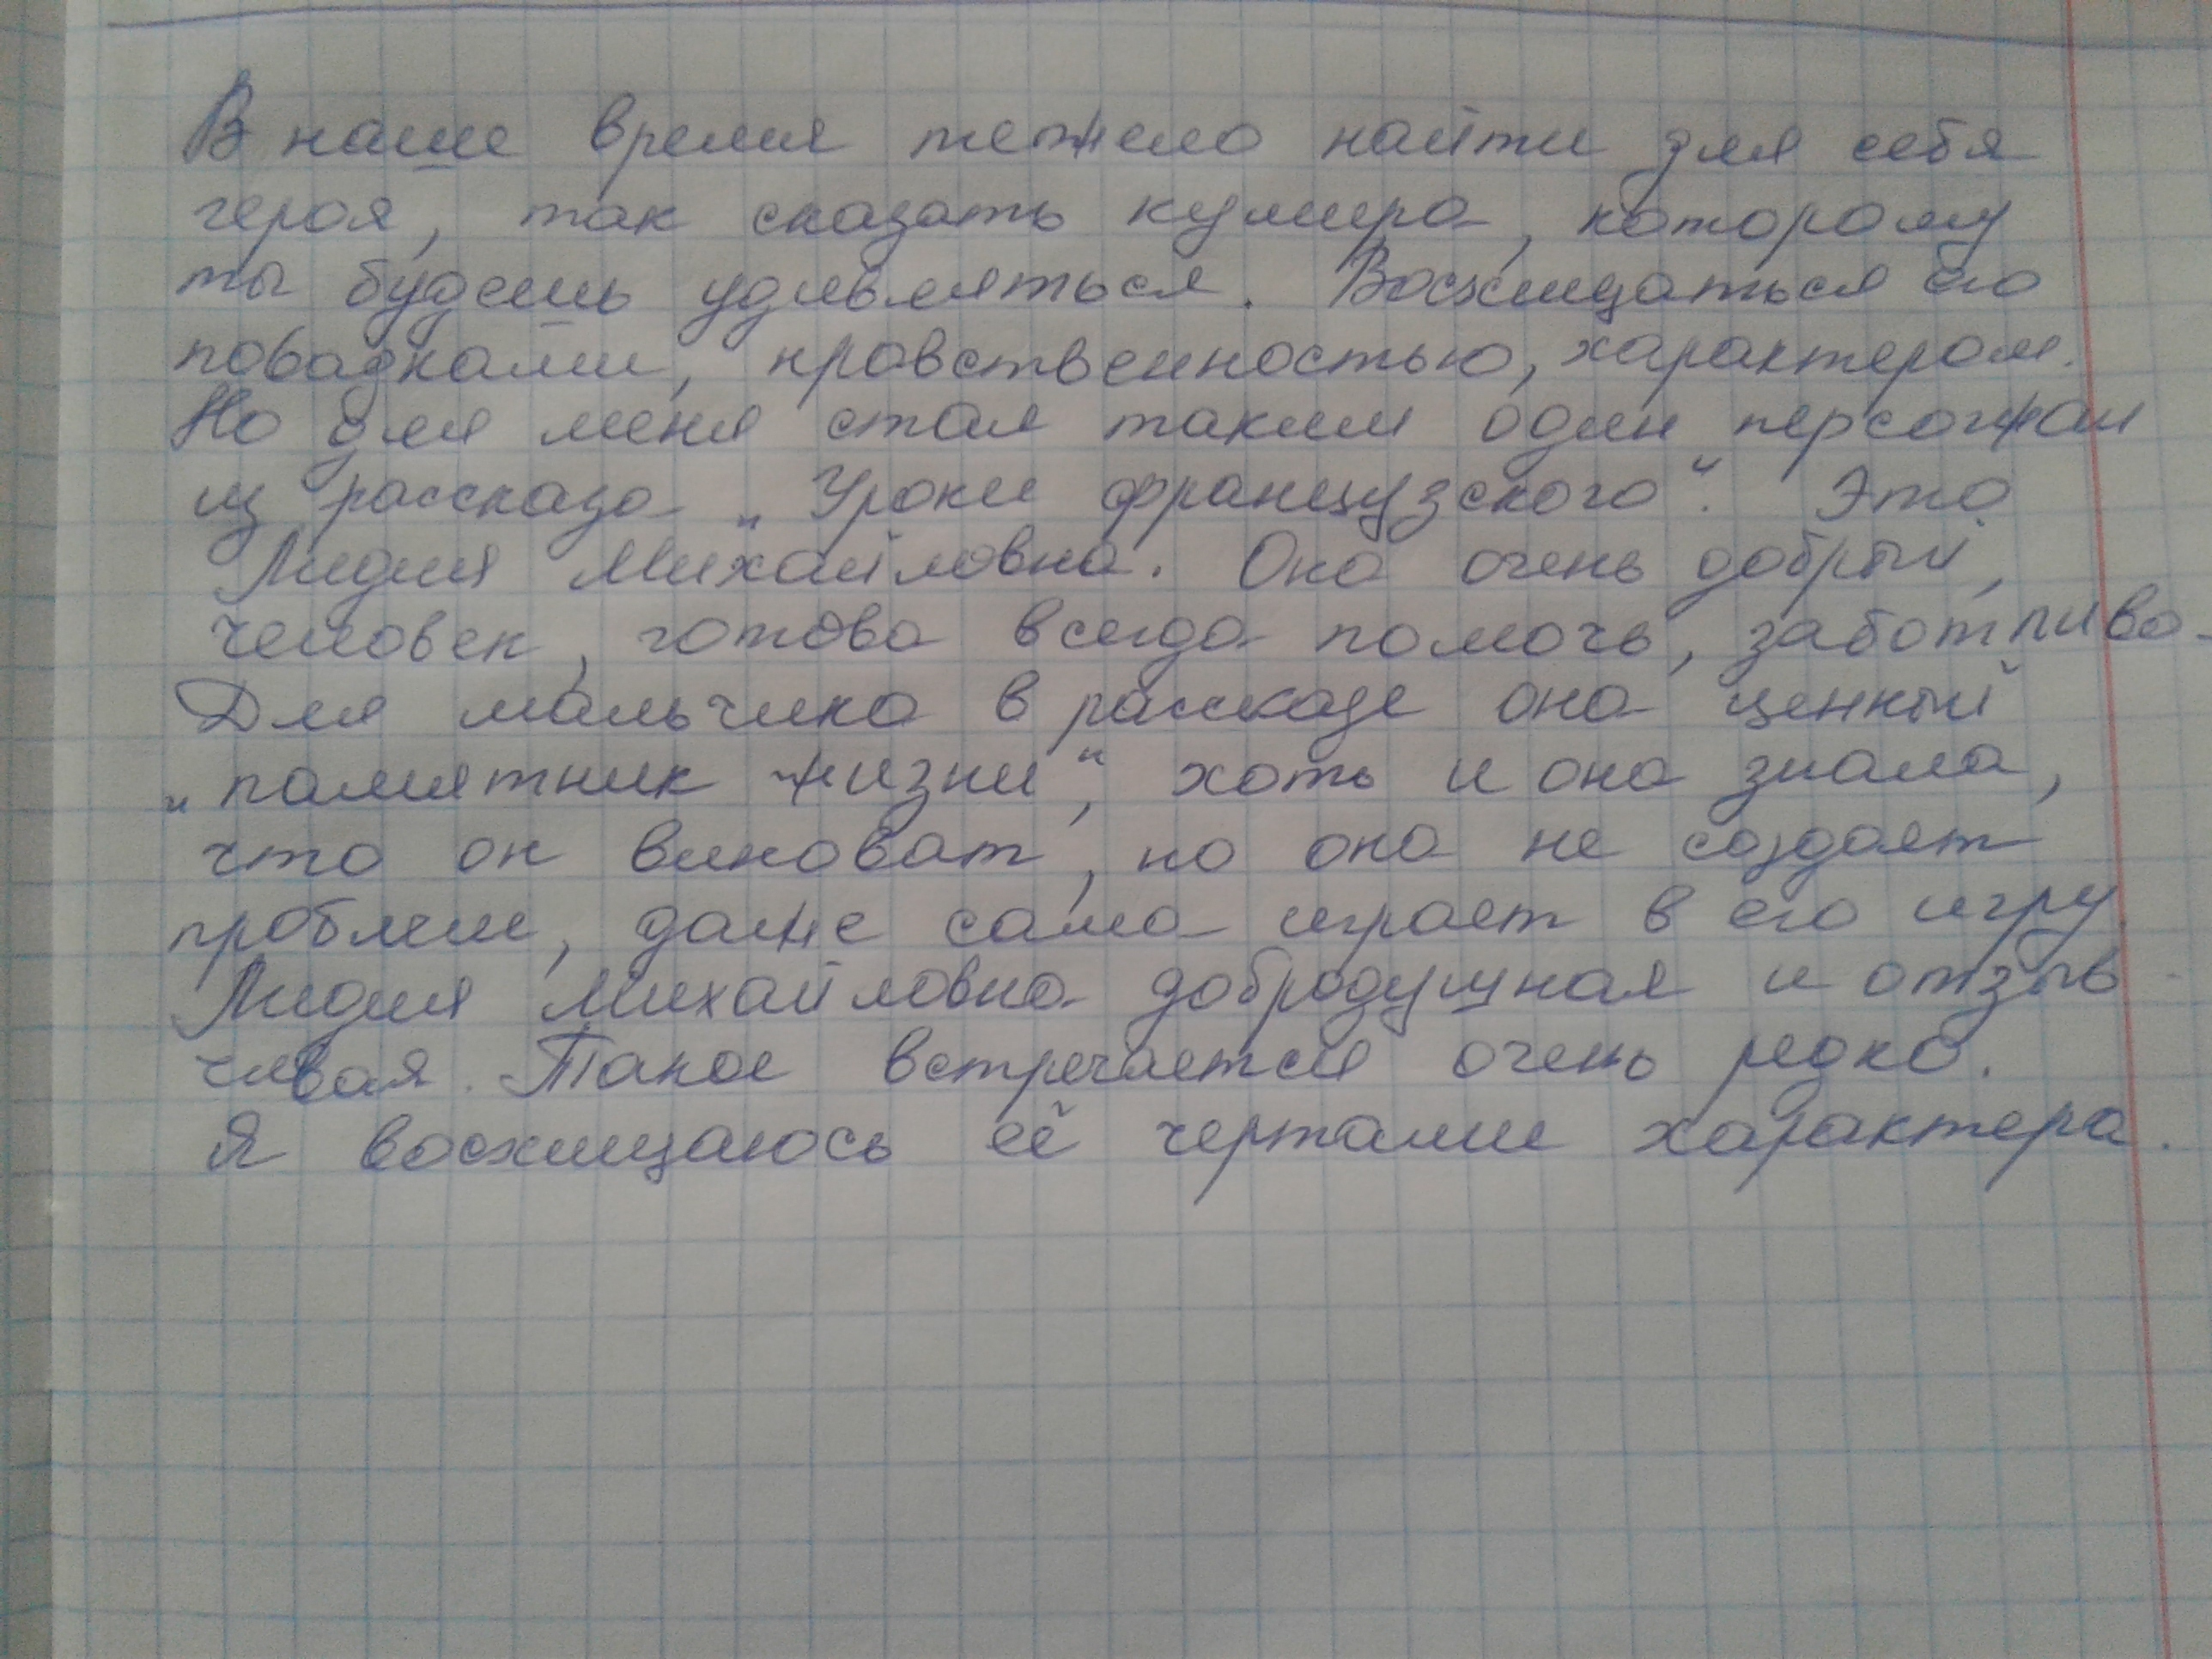 В наше время тежело найти для себя
героя, так сказать кумира, которому
ты будешь удивляться. Восхищаться его
повадками, нравственностью, характером.
Но для меня стал таким один персонжаж
из рассказа „Уроки французского“. Это
Лидия Михайловна. Она очень добрый,
человек, готова всегда помочь, заботлива.
Для мальчика в рассказе она ценный
„памятник жизни“, хоть и она знала,
что он виноват, но она не создает
проблем, даже сама играет в его игру.
Лидия Михайловна добродушная и отзыв-
чивая. Такое встречается очень редко.
Я восхищаюсь её чертами характера.